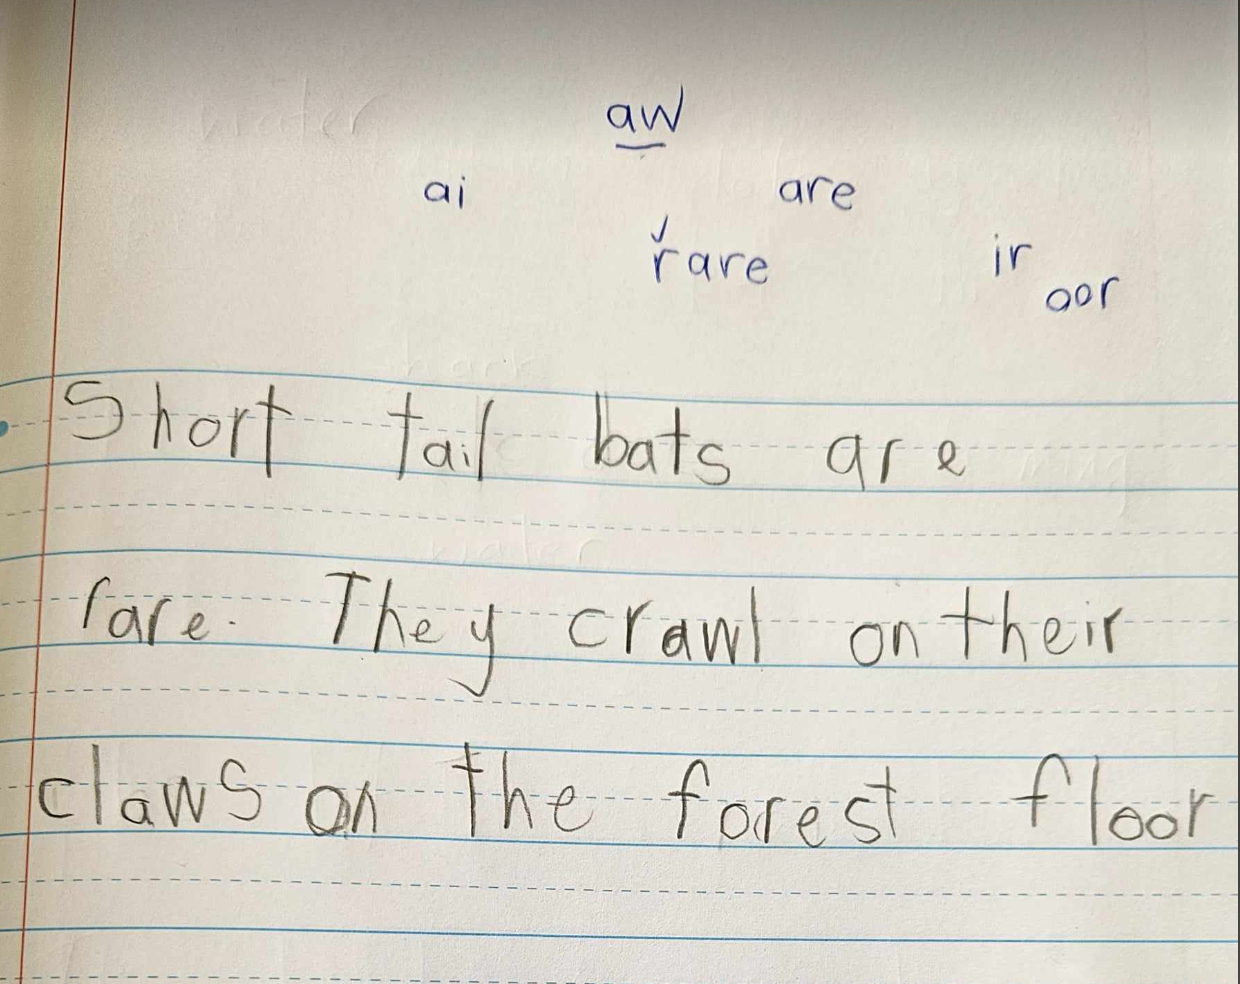 aw
ai are
rare ir
oor
Short tail bats are
rare. They crawl on their
claws on the forest floor